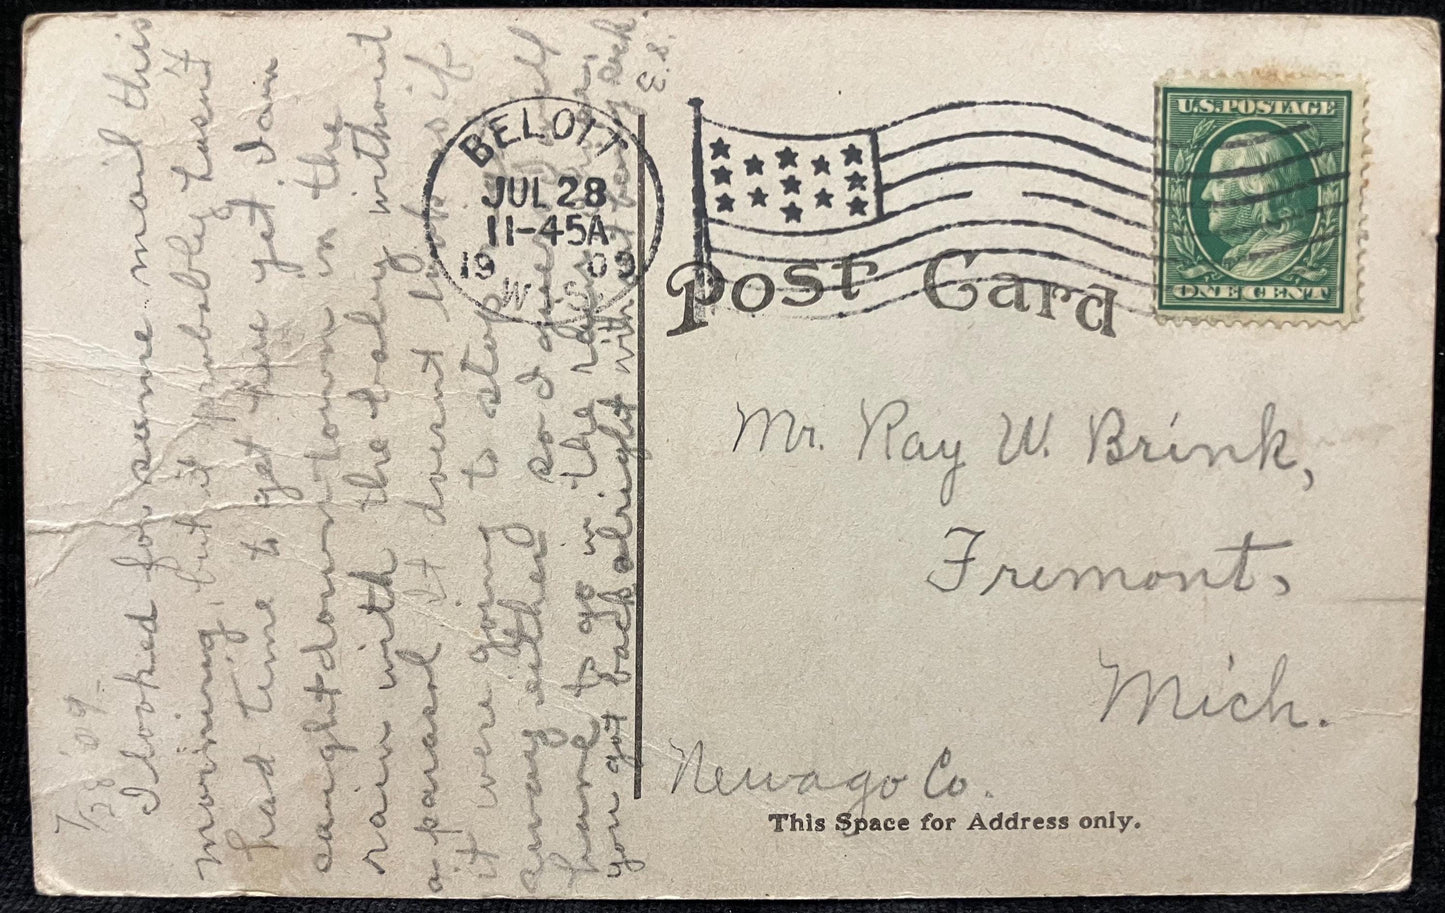 7/28 '09-
I looked for some mail this
morning, but it probably hasn't
had time to get here yet. I am
caught down-town in the
rain with the baby without
a parasol. It doesnt look as if
it were going to stop
away either so I guess I'll
have to go in the rain.
you got back alright with
E.S.
BELOIT
JUL 28
11-45A
1909
WIS.
U.S. POSTAGE
ONE CENT
Post Card
Mr. Ray W. Brink,
Fremont,
Mich.
Newago Co.
This Space for Address only.